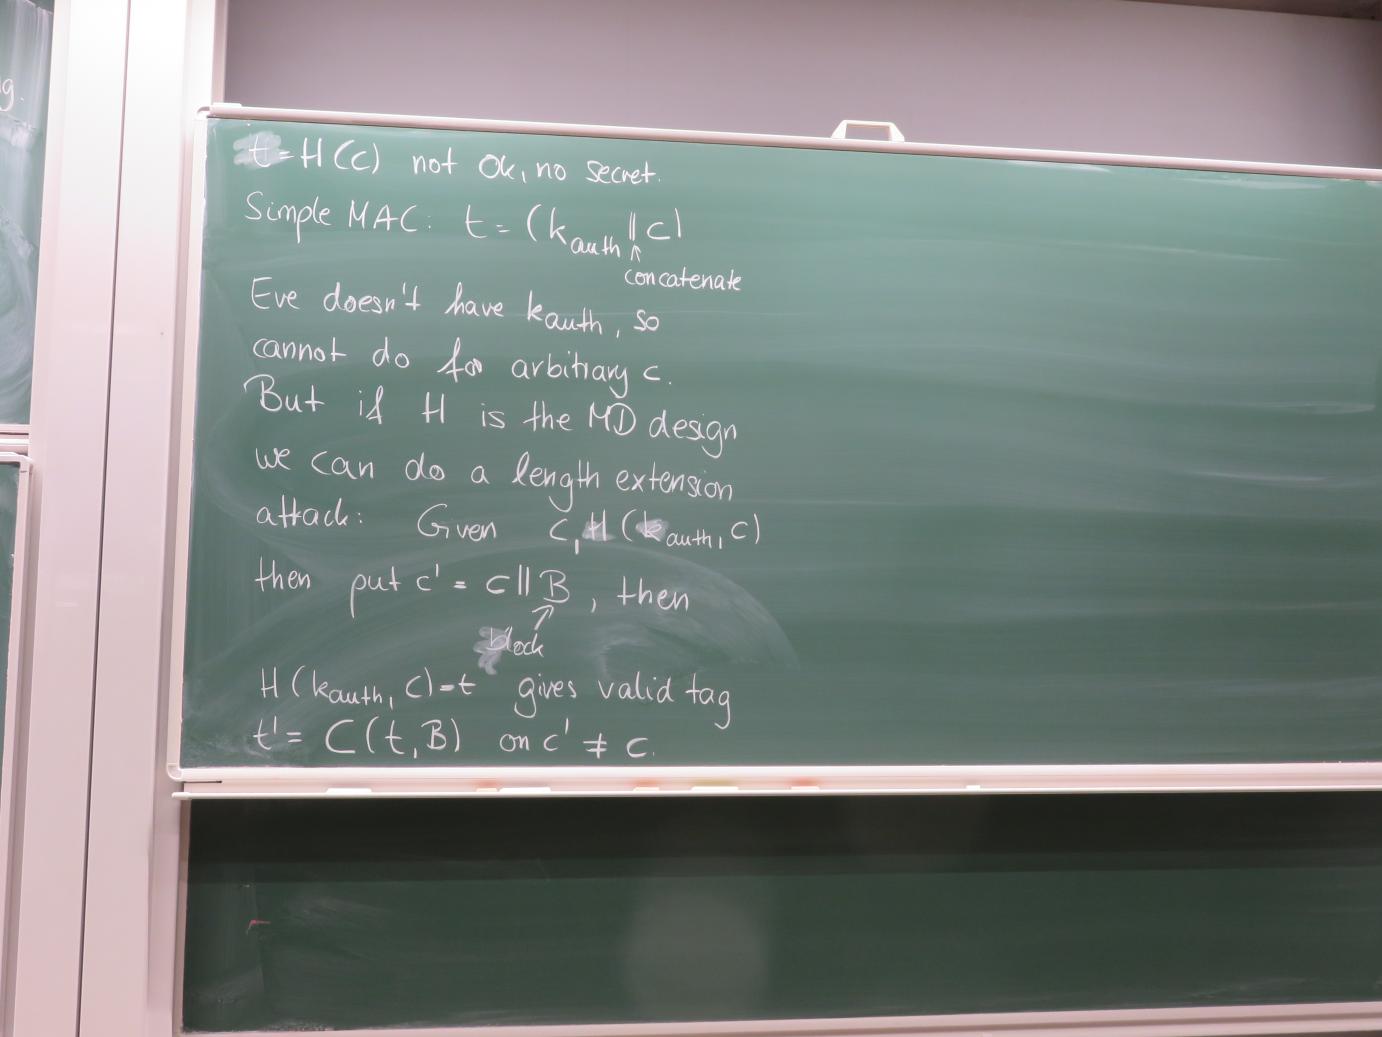 g.
t = H(c) not ok, no secret.
Simple MAC: t = (k_auth || c)
↑
concatenate
Eve doesn't have k_auth, so
cannot do for arbitrary c.
But if H is the MD design
we can do a length extension
attack: Given c, H(k_auth, c)
then put c' = c || B, then
↗
block
H(k_auth, c) = t gives valid tag
t' = C(t, B) on c' ≠ c.